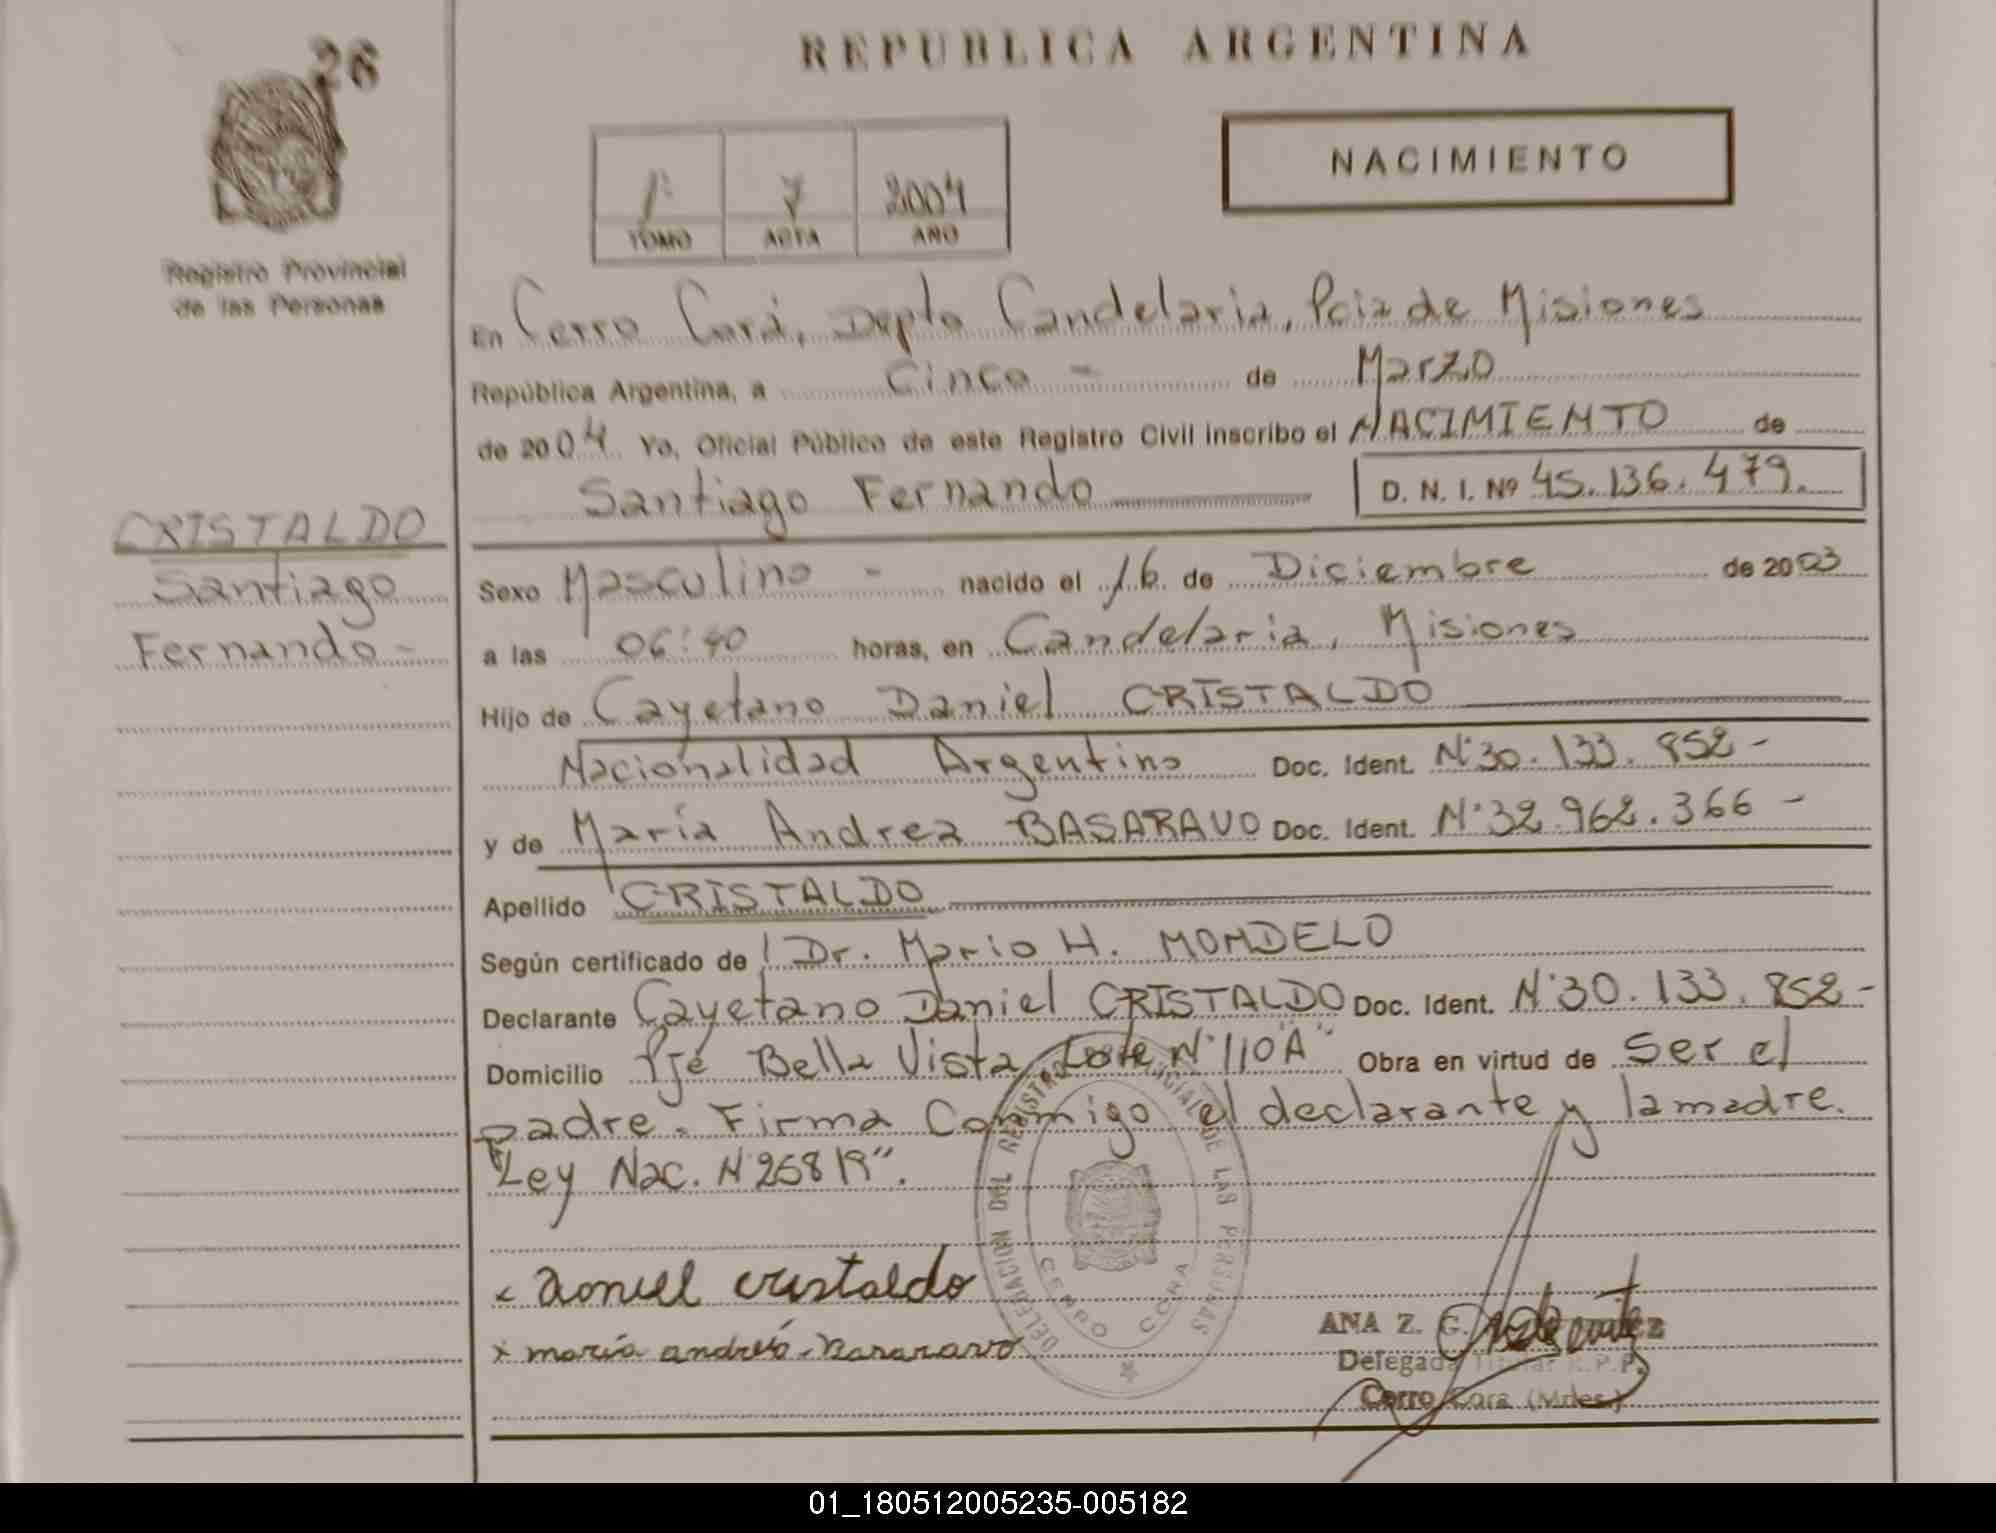 26
REPUBLICA ARGENTINA
NACIMIENTO
1º 7 2004
TOMO ACTA AÑO
Registro Provincial
de las Personas
En Cerro Corá, Depto Candelaria, Pcia de Misiones
República Argentina, a cinco - de Marzo
de 2004 Yo, Oficial Público de este Registro Civil inscribo el NACIMIENTO de
Santiago Fernando D. N. I. Nº 45.136.479.
CRISTALDO
Santiago
Fernando -
Sexo Masculino - nacido el 16 de Diciembre de 2003
a las 06:40 horas, en Candelaria, Misiones
Hijo de Cayetano Daniel CRISTALDO
Nacionalidad Argentino Doc. Ident. Nº 30.133.852 -
y de María Andrea BASARAVO Doc. Ident. Nº 32.962.366 -
Apellido CRISTALDO
Según certificado de Dr. Mario H. MONDELO
Declarante Cayetano Daniel CRISTALDO Doc. Ident. Nº 30.133.852 -
Domicilio Pje Bella Vista, Lote Nº 110 "A" Obra en virtud de Ser el
padre. Firma Conmigo el declarante y la madre.
"Ley Nac. Nº 25819".
DELEGACION DEL REGISTRO PROVINCIAL DE LAS PERSONAS
CERRO CORA
x Daniel cristaldo
x maría andrea Basaravo
ANA Z. G.
Delegada Titular R.P.P.
Cerro Cora (Mnes.)
01_180512005235-005182